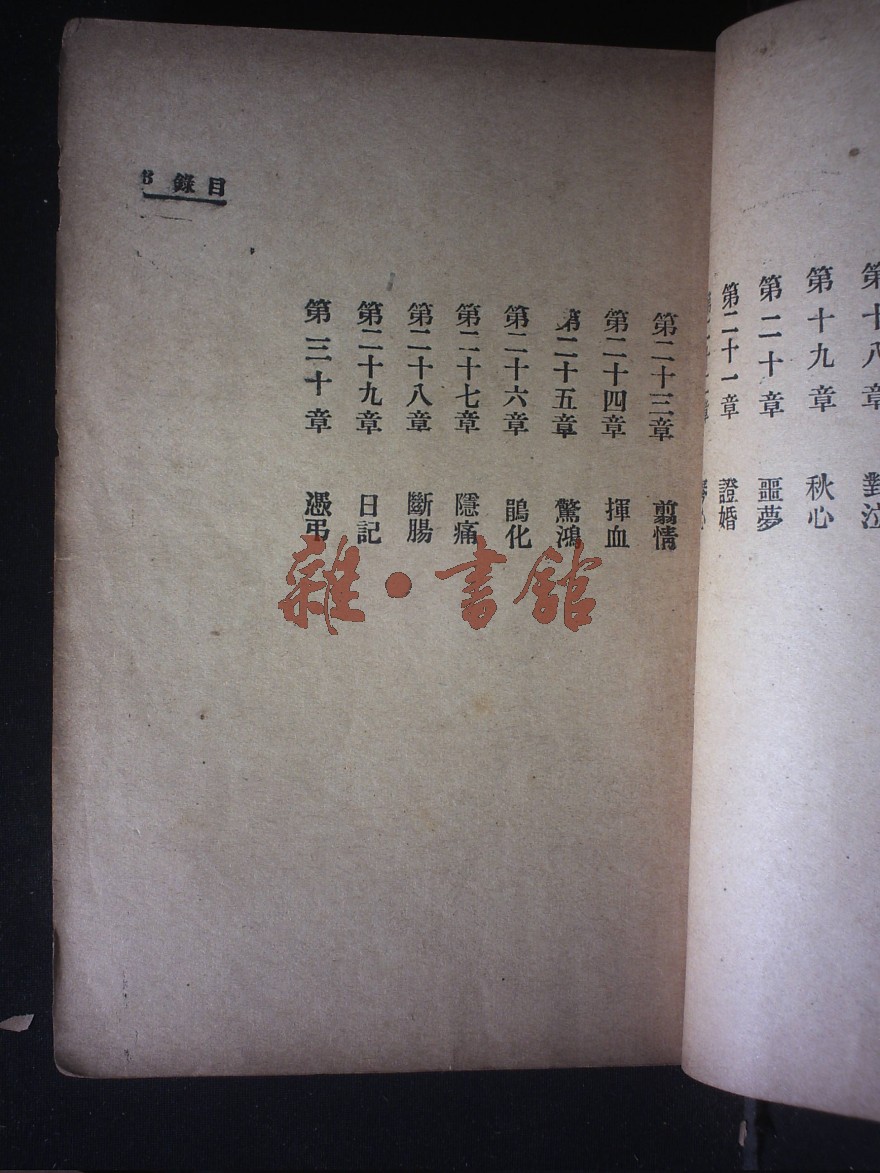 第十八章 對泣
第十九章 秋心
第二十章 噩夢
第二十一章 證婚
目錄 3
第二十三章 翦情
第二十四章 揮血
第二十五章 驚鴻
第二十六章 鵑化
第二十七章 隱痛
第二十八章 斷腸
第二十九章 日記
第三十章 憑弔
雜·書館